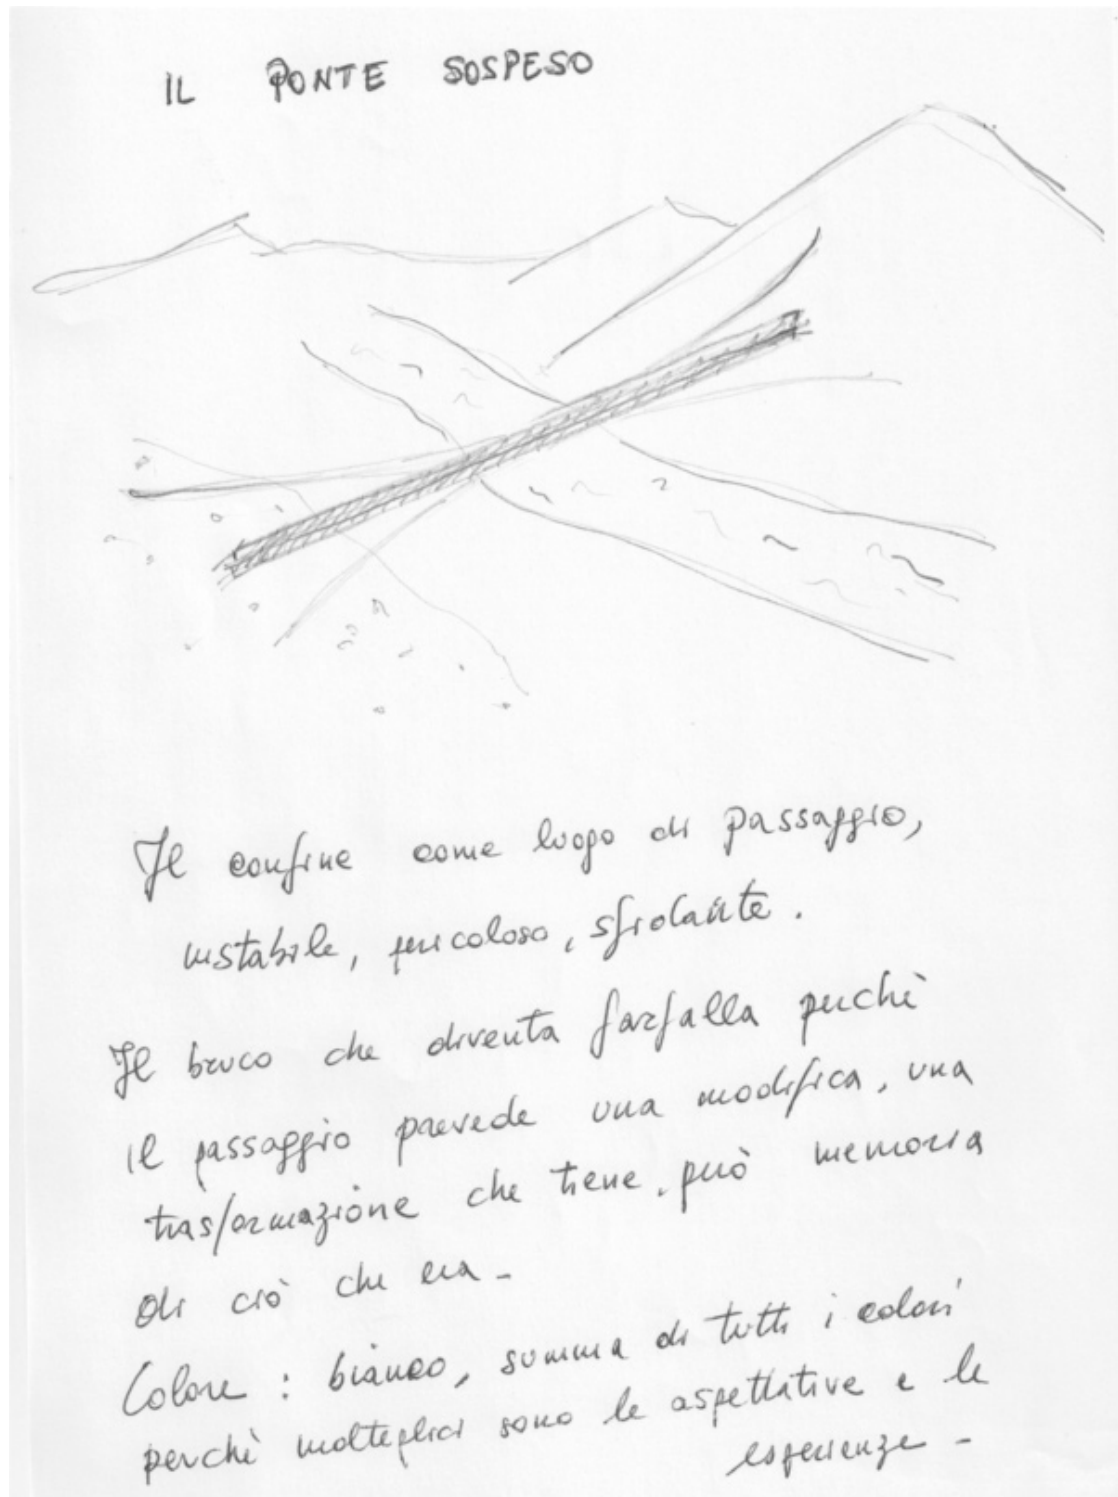 IL PONTE SOSPESO
Il confine come luogo di passaggio,
instabile, pericoloso, sfidante.
Il bruco che diventa farfalla perchè
il passaggio prevede una modifica, una
trasformazione che tiene, può memoria
di ciò che era -
Colore : bianco, summa di tutti i colori
perchè molteplici sono le aspettative e le
esperienze -